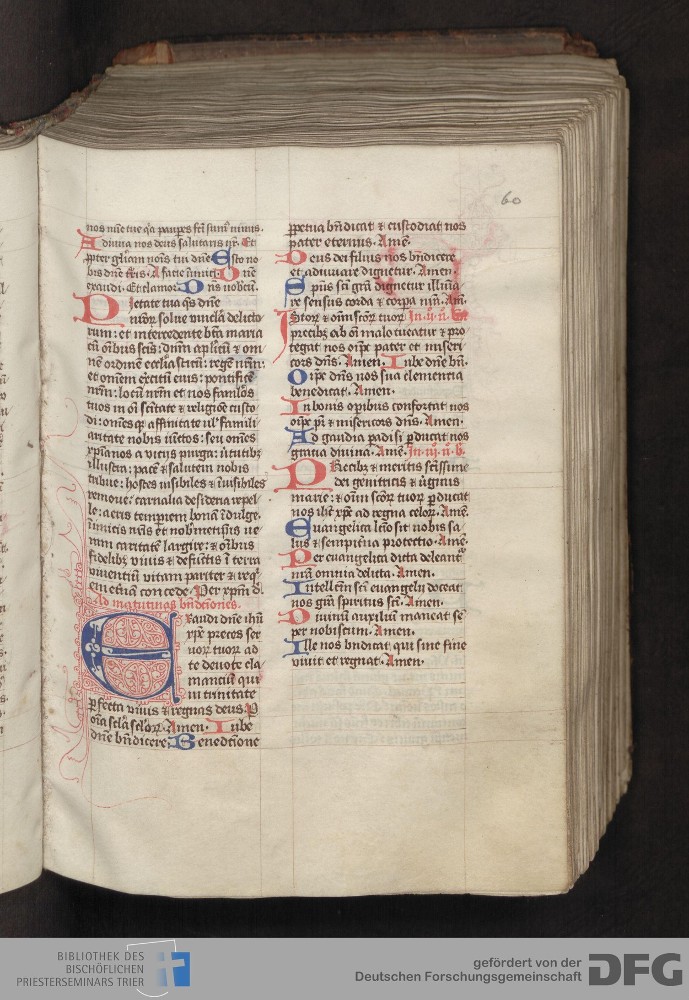 60
nos mīe tue q̄a paupes fcī sumꝰ nimis.
Adiuua nos deus salutaris nr̄. Et
ꝓpter gl̄iam nois̄ tui dn̄e Esto no
bis dn̄e t̄ris. A facie īimici Dn̄e
exaudi. Et clamor Dn̄s vobcū.
Pietate tua qs̄ dn̄e
nr̄oꝝ solue vincl̄a delicto
rum: et intercedente bt̄a maria
cū om̄ibus scīs: dnm̄ aplicū ⁊ om
nē ordinē eccl̄iasticū: regē nrm̄:
et om̄em exc̄itū eius: pontificē
nrm̄: locū nrm̄ et nos famlos
tuos in oī scītate ⁊ religiōe custo
di: om̄esqꝫ affinitate ul̓ famili
aritate nobis iūctos: seu om̄es
xp̄ianos a vicijs purga: ūtutibꝫ
illustra: pacē ⁊ salutem nobis
tribue: hostes visibiles ⁊ īuisibiles
remoue: carnalia desideria repel
le: aeris temperiem bonā īdulge.
īimicis nr̄is et nobꝭmetipsis ue
ram caritatē largire: ⁊ om̄ibus
fidelibꝫ viuis ⁊ defūctis ī terra
viuentiū vitam pariter ⁊ req̄
em etnā concede. Per xpm̄ d.
Ad matutinas bn̄dctiones.
Exaudi dn̄e ihū
xp̄e preces ser
uoꝝ tuoꝝ ad
te deuote cla
mantiū qui
in trinitate
ꝑfecta viuis ⁊ regnas deus. P
om̄ia scl̄a scl̄oꝝ. Amen. Iube
dn̄e bn̄dicere. Benedctione
ꝑpetua bn̄dicat ⁊ custodiat nos
pater eternus. Amē.
Deus dei filius nos bn̄dicere
et adiuuare dignetur. Amen.
Spūs scī grā dignetur illūia
re sensus corda ⁊ corpa nr̄a. Am̄
Istoꝝ ⁊ om̄iū scōꝝ tuoꝝ In. ij. n̄. b
precibꝫ ab oī malo tueatur ⁊ pro
tegat nos oīps pater et miseri
cors dn̄s. Amen. Iube dn̄e bn̄.
Oīps dn̄s nos sua clementia
benedicat. Amen.
In bonis opibus confortat nos
oīps pr̄ ⁊ misericors dn̄s. Amen.
Ad gaudia padisi ꝑducat nos
gracia diuina. Amē. In. iij. n̄. b.
Precibꝫ ⁊ meritis scīssime
dei genitricis ⁊ ūginis
marie: ⁊ om̄iū scōꝝ tuoꝝ ꝑducat
nos ihū xp̄e ad regna celoꝝ. Amē.
Euangelica lc̄io sit nobis sa
lus ⁊ sempit̄na protectio. Amē.
Per euangelica dicta deleant᷑
nr̄a omnia delicta. Amen.
Intellc̄tū scī euangelij doceat
nos grā spiritus scī. Amen.
Diuinū auxiliū maneat sē
per nobiscum. Amen.
Ille nos bn̄dicat qui sine fine
viuit et regnat. Amen.
BIBLIOTHEK DES
BISCHÖFLICHEN
PRIESTERSEMINARS TRIER
gefördert von der
Deutschen Forschungsgemeinschaft
DFG